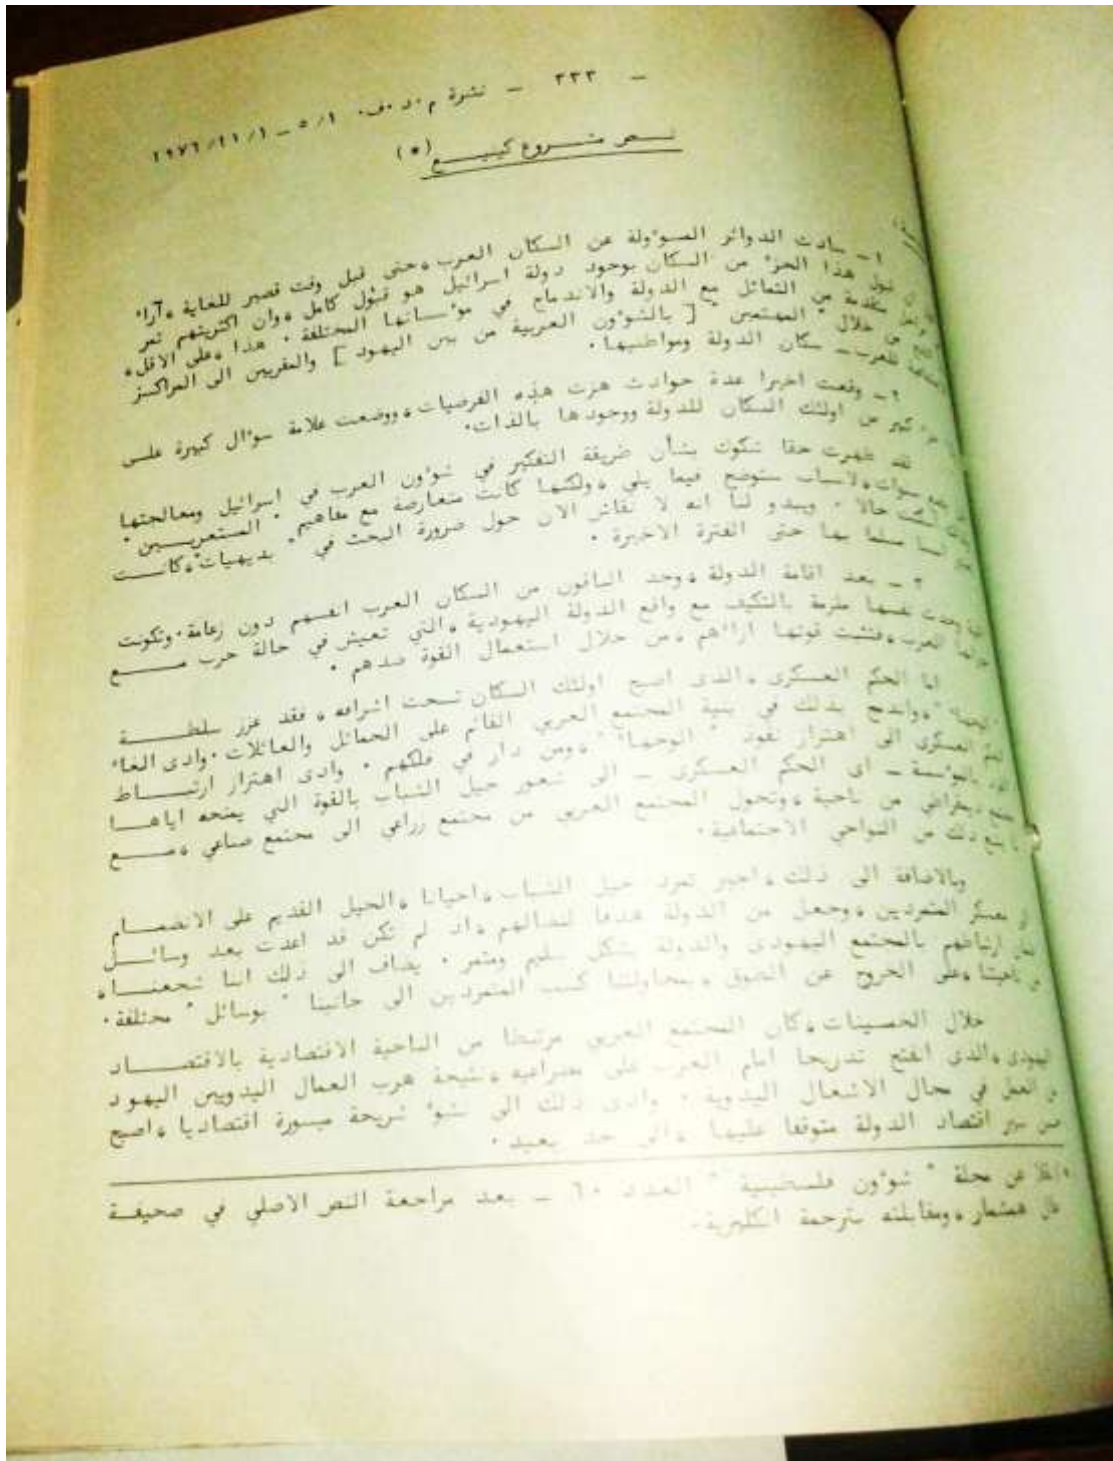 - ٣٣٣ - نشرة م٠د٠ف٠ ١/٥ - ١٩٧٦/١١/١
نـص مشـروع كينيـغ (*)
١- سادت الدوائر المسوءولة عن السكان العرب،حتى قبل وقت قصير للغاية ،آراء
قبول هذا الجزء من السكان بوجود دولة اسرائيل هو قبول كامل ،وان اكثريتهم تمر
متقدمة من التماثل مع الدولة والاندماج في موءسساتها المختلفة ٠ هذا ،على الاقل،
من خلال " المهتمين " [ بالشوءون العربية من بين اليهود ] والمقربين الى المراكز
للعرب - سكان الدولة ومواطنيها٠
٢- وقعت اخيرا عدة حوادث هزت هذه الفرضيات،ووضعت علامة سوءال كبيرة على
كبير من اولئك السكان للدولة ووجودها بالذات٠
لقد ظهرت حقا شكوك بشأن طريقة التفكير في شوءون العرب في اسرائيل ومعالجتها
سنوات،لاسباب ستوضح فيما يلي ،ولكنها كانت متعارضة مع مفاهيم " المستعربـين "
حالا ٠ ويبدو لنا انه لا نقاش الان حول ضرورة البحث في " بديهيات"،كانـت
مسلما بها حتى الفترة الاخيرة ٠
٣ - بعد اقامة الدولة ،وجد الباقون من السكان العرب انفسهم دون زعامة٠وتكونت
نفسها ملزمة بالتكيف مع واقع الدولة اليهودية ،التي تعيش في حالة حرب مـــع
العرب،فثبتت قوتها ازاءهم ،من خلال استعمال القوة ضدهم ٠
اما الحكم العسكرى ،الذى اصبح اولئك السكان تحت اشرافه ، فقد عزز سلطـــة
،واندمج بذلك في بنية المجتمع العربي القائم على الحمائل والعائلات٠وادى الغاء
العسكرى الى اهتزاز نفوذ " الوجهاء" ،ومن دار في فلكهم ٠ وادى اهتزاز ارتبـــاط
- اى الحكم العسكرى - الى شعور جيل الشباب بالقوة التي يمنحه اياهــا
من ناحية ،وتحول المجتمع العربي من مجتمع زراعي الى مجتمع صناعي ،مـــع
ذلك من النواحي الاجتماعية٠
وبالاضافة الى ذلك ،اجبر تمرد جيل الشباب،احيانا ،الجيل القديم على الانضمـــام
معسكر المتمردين ،وجعل من الدولة هدفا لنضالهم ،اذ لم تكن قد اعدت بعد وسائـــل
ارتباطهم بالمجتمع اليهودى والدولة بشكل سليم ومثمر ٠ يضاف الى ذلك اننا شجعنـــا،
من ناحيتنا،على الخروج عن الطوق ،بمحاولتنا كسب المتمردين الى جانبنا " بوسائل " مختلفة٠
خلال الخمسينات،كان المجتمع العربي مرتبطا من الناحية الاقتصادية بالاقتصـــاد
اليهودى،الذى انفتح تدريجا امام العرب على مصراعيه ،نتيجة هرب العمال اليدويين اليهود
من العمل في مجال الاشغال اليدوية ٠ وادى ذلك الى نشوء شريحة ميسورة اقتصاديا ،اصبح
سير اقتصاد الدولة متوقفا عليها ،الى حد بعيد ٠
عن مجلة " شوءون فلسطينية " العدد ٦٠ - بعد مراجعة النص الاصلي في صحيفـــة
عال همشمار،ومقابلته بترجمة انكليزية٠